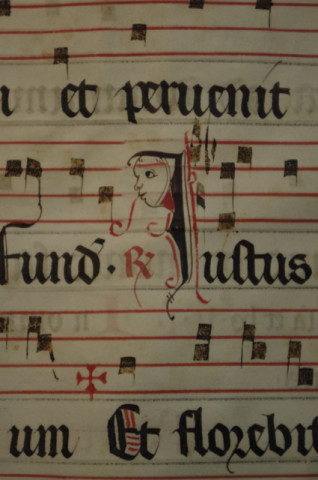 et peruenit
fund̄. ℟ Iustus
um Et florebit